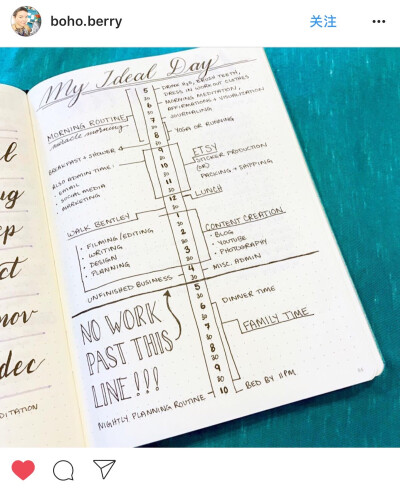 boho.berry
关注
My Ideal Day
5
30
6
30
7
30
8
30
9
30
10
30
11
30
12
30
1
30
2
30
3
30
4
30
5
30
6
30
7
30
8
30
9
30
10
DRESS IN WORKOUT CLOTHES
MORNING MEDITATION,
AFFIRMATIONS + VISUALIZATION
JOURNALING
MORNING ROUTINE
miracle morning
YOGA OR RUNNING
BREAKFAST + SHOWER
ALSO ADMIN TIME:
· EMAIL
· SOCIAL MEDIA
· MARKETING
ETSY
STICKER PRODUCTION
(OR)
PACKING + SHIPPING
LUNCH
WALK BENTLEY
· FILMING/EDITING
· WRITING
· DESIGN
· PLANNING
CONTENT CREATION
· BLOG
· YOUTUBE
· PHOTOGRAPHY
UNFINISHED BUSINESS
MISC. ADMIN
NO WORK
PAST THIS
LINE!!!
DINNER TIME
FAMILY TIME
NIGHTLY PLANNING ROUTINE
BED BY 11PM
nov
dec